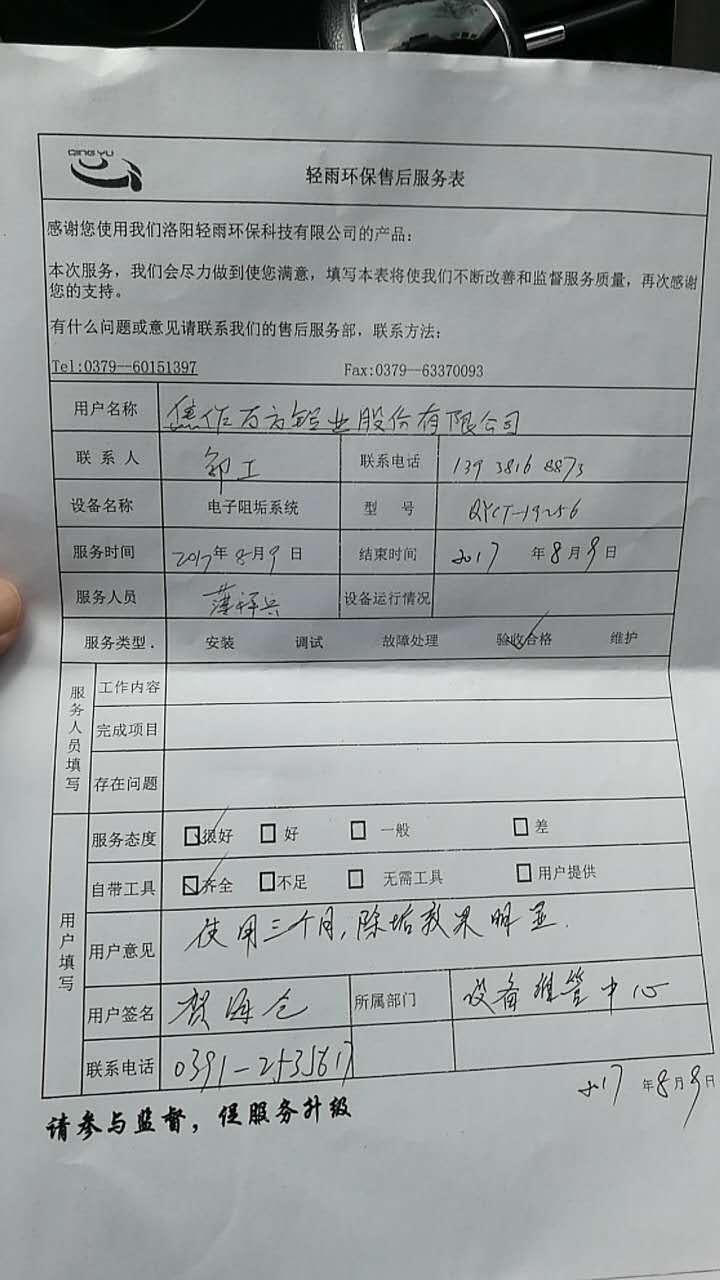 QING YU
轻雨环保售后服务表
感谢您使用我们洛阳轻雨环保科技有限公司的产品:
本次服务，我们会尽力做到使您满意，填写本表将使我们不断改善和监督服务质量，再次感谢
您的支持。
有什么问题或意见请联系我们的售后服务部，联系方法:
Tel:0379--60151397 Fax:0379--63370093
用户名称 焦作万方铝业股份有限公司
联系人 工 联系电话 139 3816 8873
设备名称 电子阻垢系统 型号 QYCT-19256
服务时间 2017年8月9日 结束时间 2017年8月9日
服务人员 设备运行情况
服务类型. 安装 调试 故障处理 验收合格 维护
服务人员填写
工作内容
完成项目
存在问题
用户填写
服务态度 很好 好 一般 差
自带工具 齐全 不足 无需工具 用户提供
用户意见 使用三个月,除垢效果明显.
用户签名 贺海仓 所属部门 设备维管中心
联系电话 0391-2535617
2017年8月9日
请参与监督，促服务升级